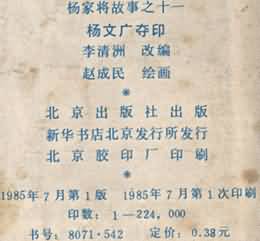 杨家将故事之十一
杨文广夺印
李清洲 改编
赵成民 绘画
北京出版社出版
新华书店北京发行所发行
北京胶印厂印刷
1985年7月第1版 1985年7月第1次印刷
印数：1—224,000
书号：8071·542 定价：0.38元